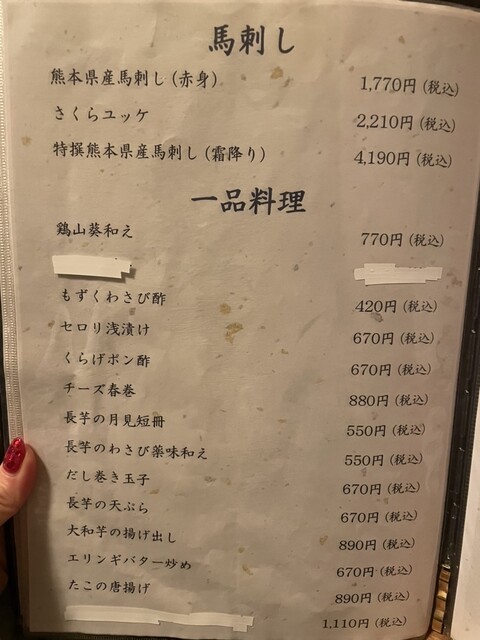 馬刺し
熊本県産馬刺し(赤身) 1,770円(税込)
さくらユッケ 2,210円(税込)
特撰熊本県産馬刺し(霜降り) 4,190円(税込)
一品料理
鶏山葵和え 770円(税込)
もずくわさび酢 420円(税込)
セロリ浅漬け 670円(税込)
くらげポン酢 670円(税込)
チーズ春巻 880円(税込)
長芋の月見短冊 550円(税込)
長芋のわさび薬味和え 550円(税込)
だし巻き玉子 670円(税込)
長芋の天ぷら 670円(税込)
大和芋の揚げ出し 890円(税込)
エリンギバター炒め 670円(税込)
たこの唐揚げ 890円(税込)
1,110円(税込)